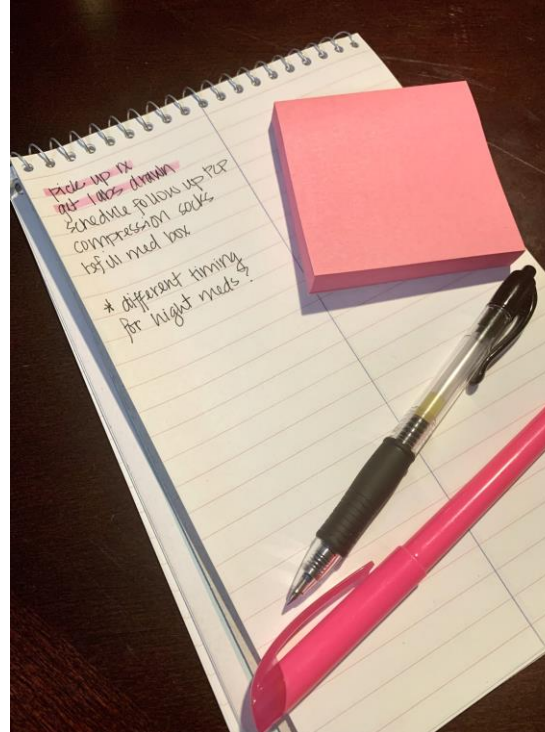 pick up rx
get labs drawn
schedule follow up PCP
compression socks
refill med box
* different timing
for night meds?